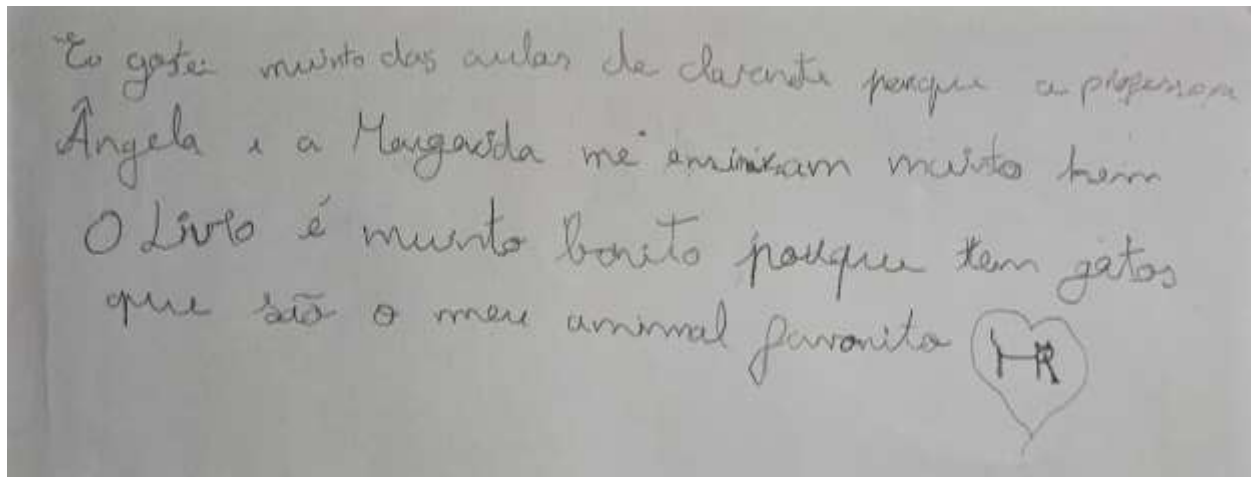 Eu gostei muinto das aulas de clarenete porque a professora
Ângela e a Margarida me ensinaram muito bem
O Livro é muinto bonito porque tem gatos
que são o meu animal favorito